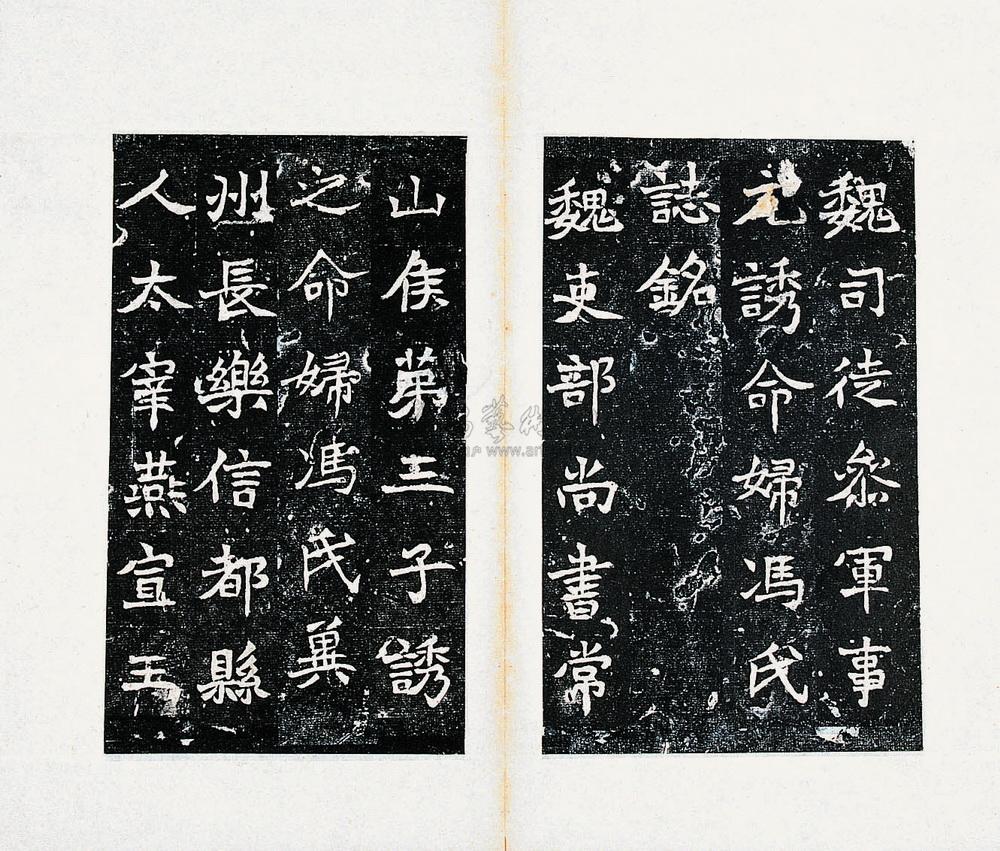 魏司徒叅軍事
元誘命婦馮氏
誌銘
魏吏部尚書常
山侯第三子誘
之命婦馮氏冀
州長樂信都縣
人太宰燕宣王